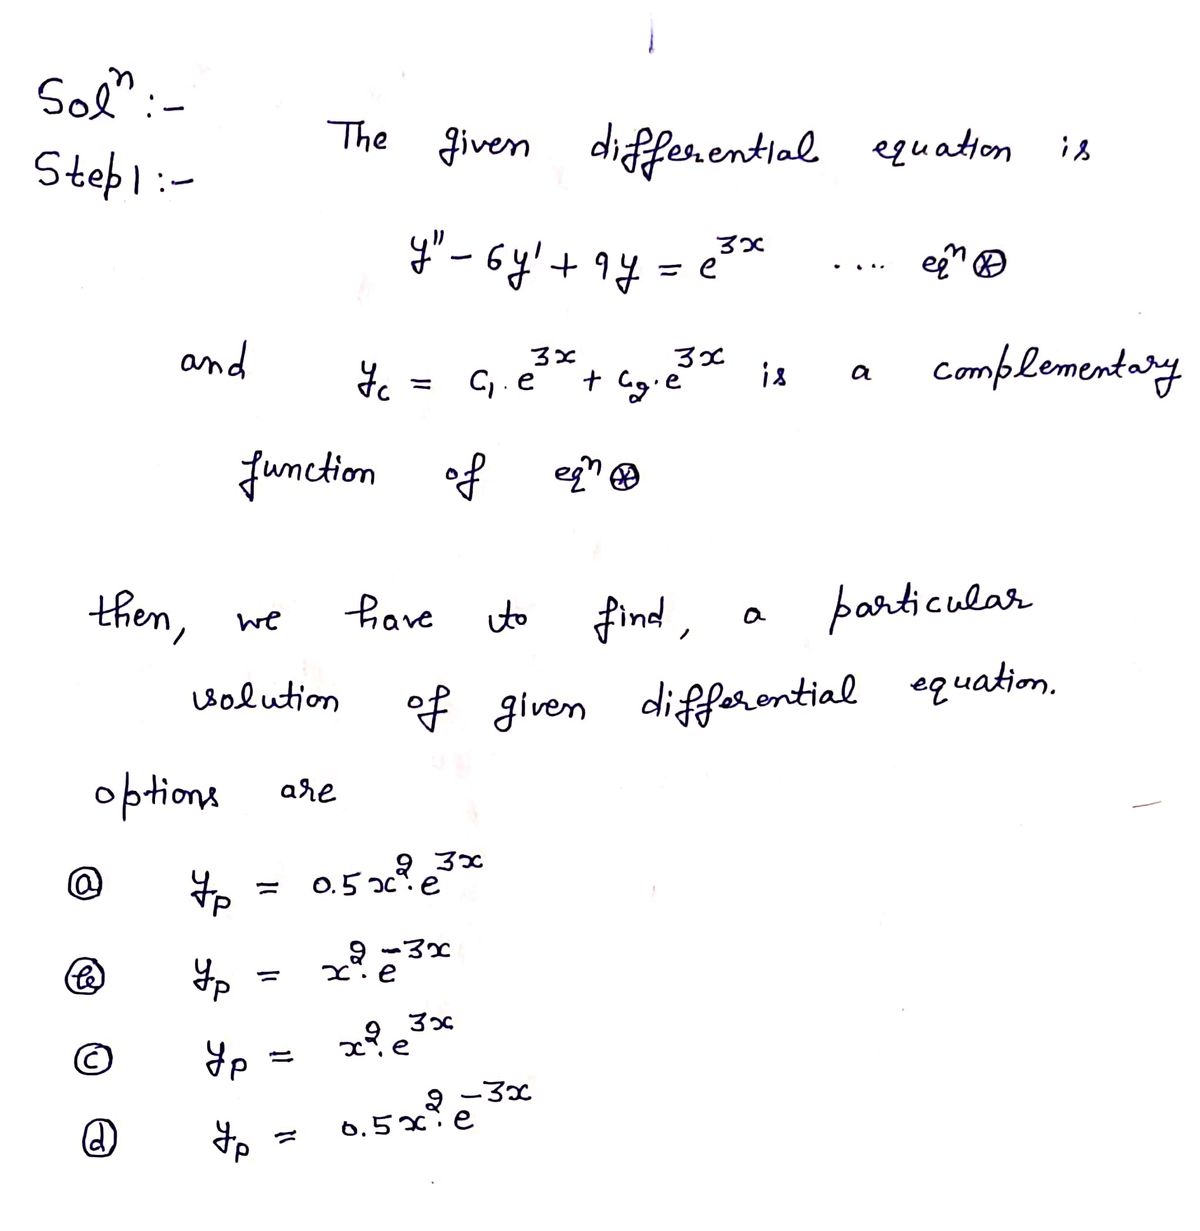 Solⁿ :-
Step 1 :-
The given differential equation is
y'' - 6y' + 9y = e^{3x} .... eqⁿ ⊛
and y_c = c₁.e^{3x} + c₂.e^{3x} is a complementary
function of eqⁿ ⊛
then, we have to find, a particular
solution of given differential equation.
options are
ⓐ y_p = 0.5x².e^{3x}
ⓑ y_p = x².e^{-3x}
ⓒ y_p = x².e^{3x}
ⓓ y_p = 0.5x².e^{-3x}